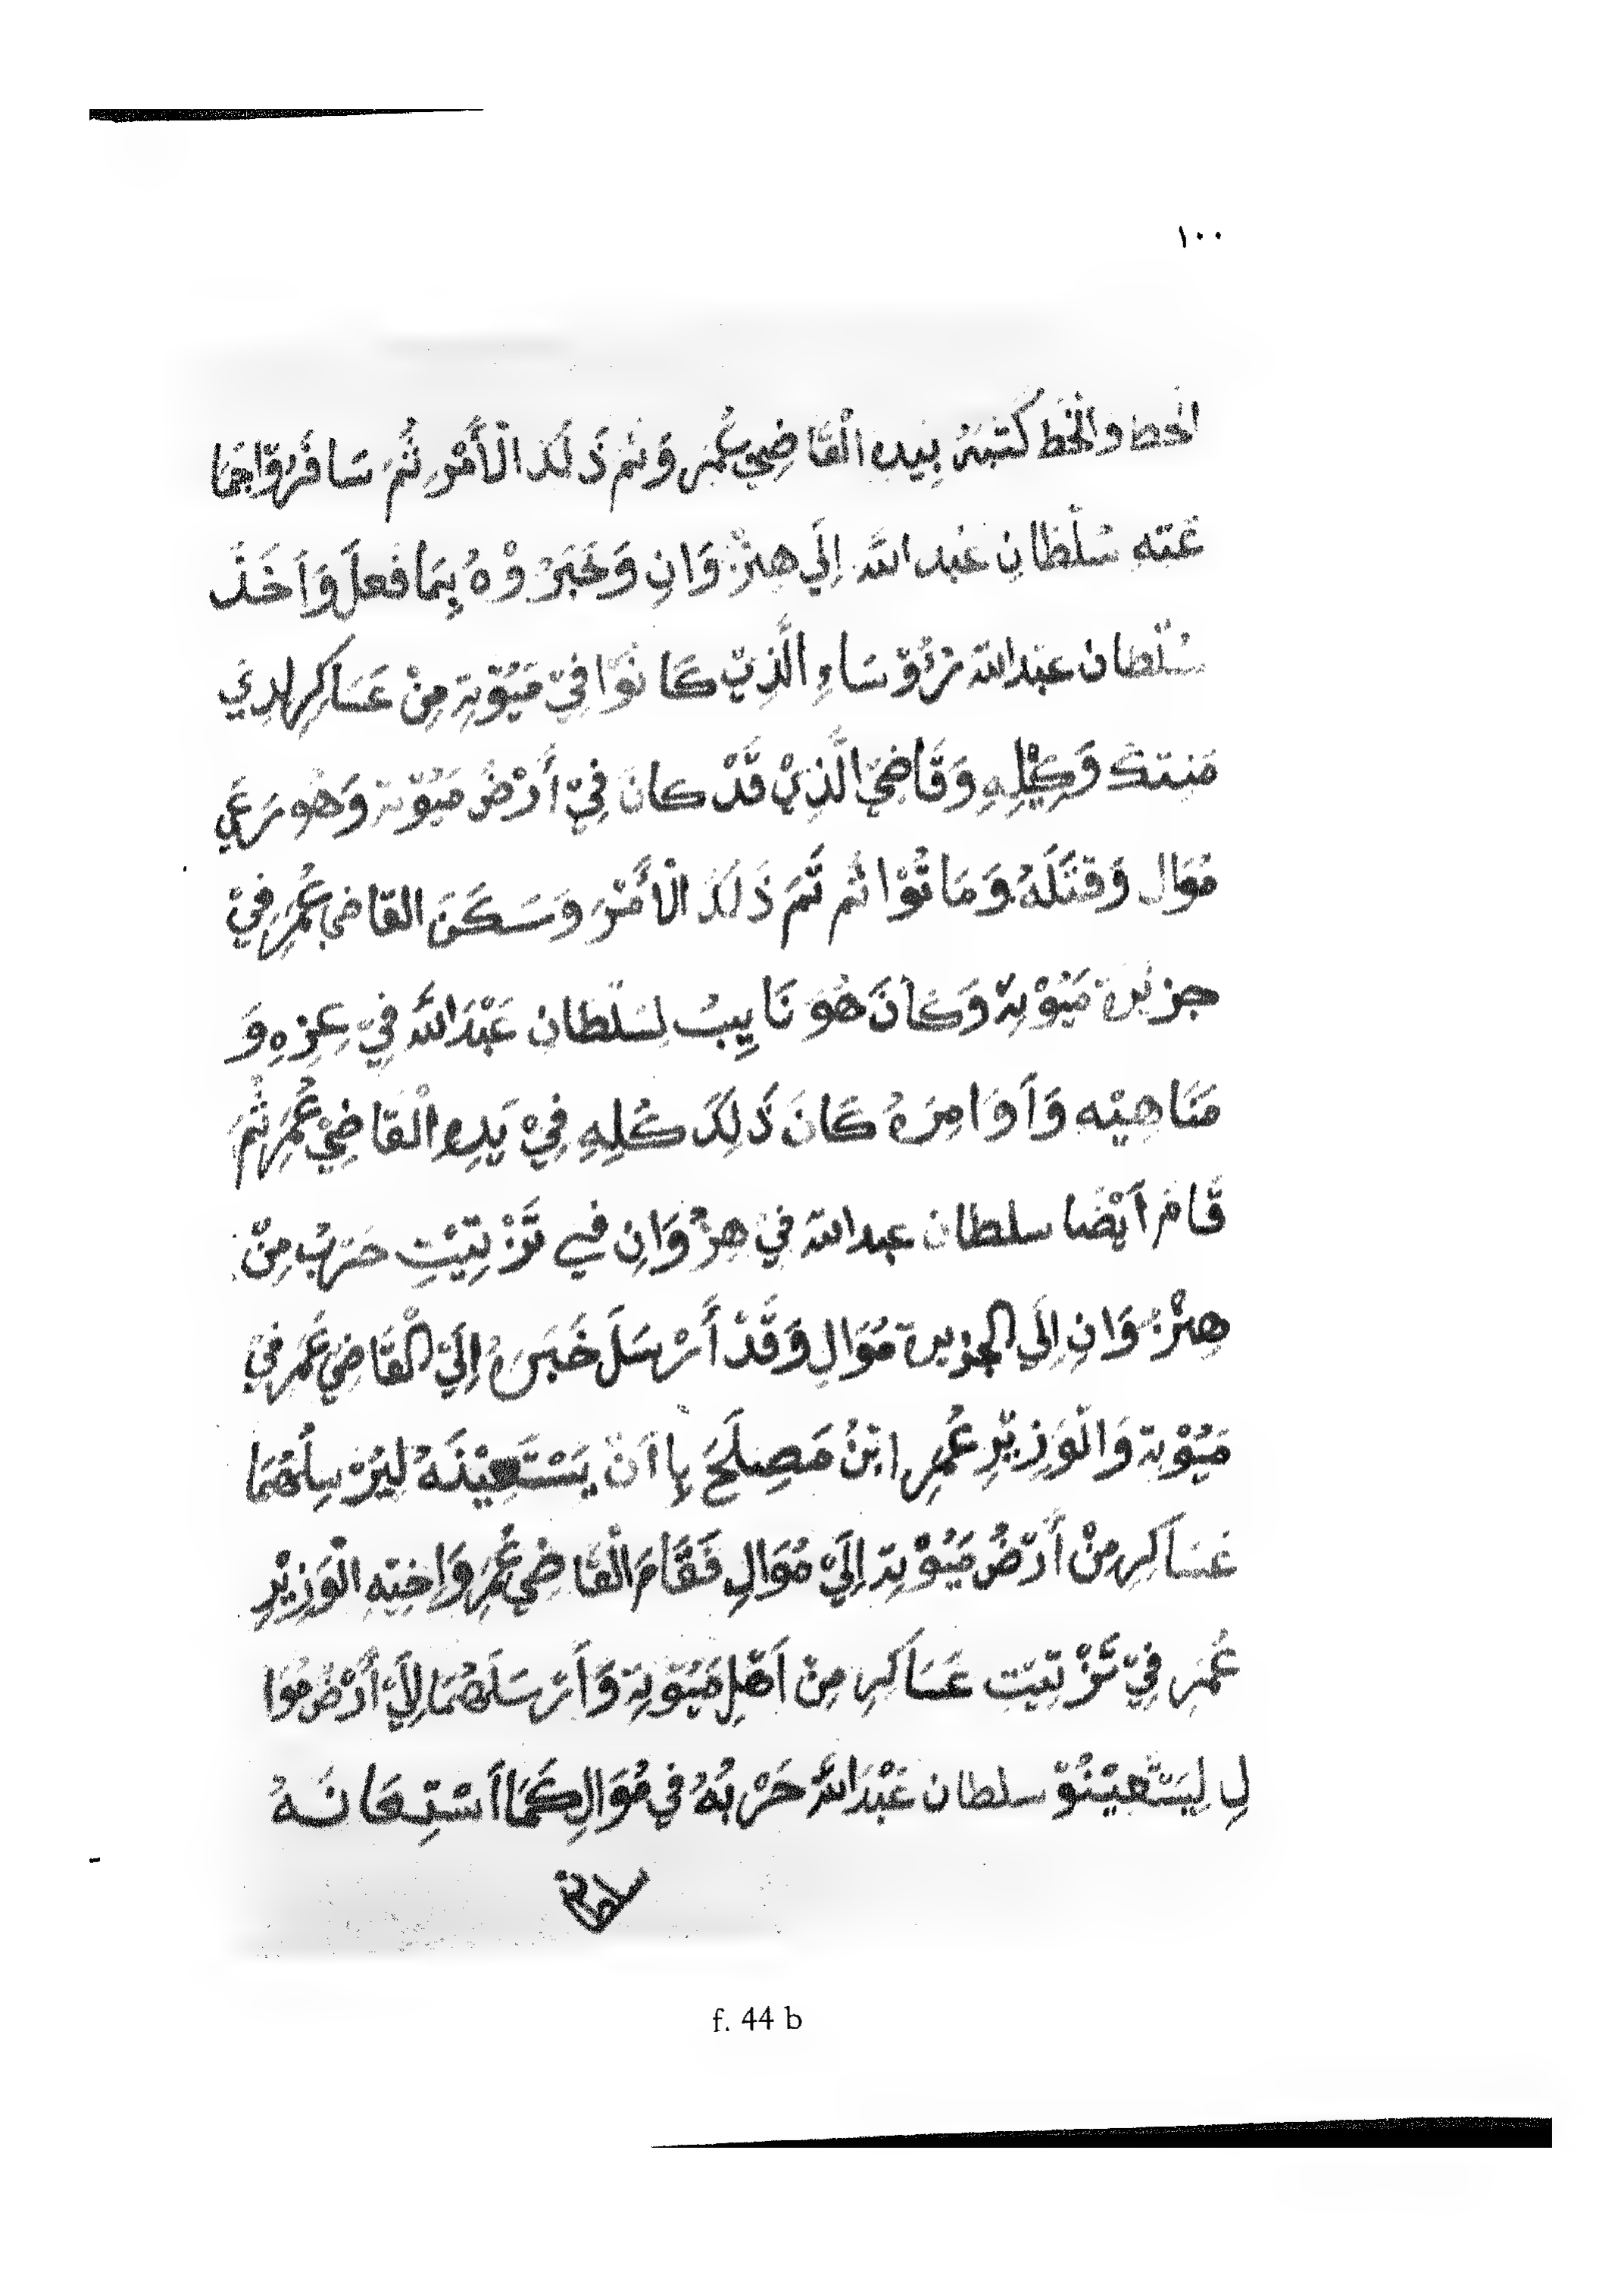 ١٠٠
الخط والْخَط كُتبَهُ بِيده الْقَاضِي عُمَر وَتَم ذَلَكَ الْأَمْر ثُمَ سَافَرُوْا جَمَا
عَتِه سُلْطَانِ عَبْد اللَّه اِلَي هِنْزُوَانِ وَخَبَرُوْهُ بِمَا فَعلَ وَاَخَذَ
سُلْطان عبْد اللَّه رُؤْسَاءِ الَّذِيْ كَانُوْا فِيْ مَيُوْتِة مِنْ عَسَاكِر
مَنِتك وَكِيْلِهِ وَقَاضِيَ الَّذِيْ قَدْ كانَ فِيْ أَرْضُ مَيُوْتة وَهُو
مُوَال وَقتَلَهُ وَمَاتُوْا ثُم تَمَ ذَلَكَ الْأَمْرَ وَسَكَنَ القاضي عُمَر فِيْ
جزيرة مَيُوْتِة وَكَانَ هُوَ نَايِبُ لسُلْطان عَبْدَ اللَّه فِيْ عِزِهِ وَ
مَنَاحِيْه وَاَوَامِرَهُ كَانَ ذَلِكَ كُلِهِ فِيْ يَدِهِ الْقَاضِيْ عُمَر ثُمَ
قَامَ اَيْضَا سلطان عبد اللَّه فِيْ هِنْزُوَانِ فِي تَزْتِيْتِ حَرَبْ مِنْ
هِنْزُوَانِ اِلَي الجزيرة مُوَالِ وَقَدْ أَرْسَلَ خَبَرَهُ اِلَيْ الْقَاضِي عُمَر فِيْ
مَيُوْتة وَالْوَزِيْرِ عُمَر ابْنُ مَصِلَحَ بِااَنْ يَسْتَعِيْنَهُ لِيُرْسِلُهُمَا
عَسَاكِر مِنْ أَرْضُ مَيُوْتِة اِلَيْ مُوَالِ فَقَامَ الْقَاضِي عُمَر وَاخِيْهِ الْوَزِيْرِ
عُمَر فِيْ تَزْتِيْت عَسَاكِر مِنْ اَهْلِ مَيُوْتِة وَأَرْسَلَهُمَا اِلَيْ أَرْضُ مُوَا
لِ لِيَسْتَعِيْنُوْ سلطان عَبْدَ اللَّه حَرْبُهُ فِي مُوَالِ كَمَا اَسْتِعَانَهُ
سلطان
f. 44 b